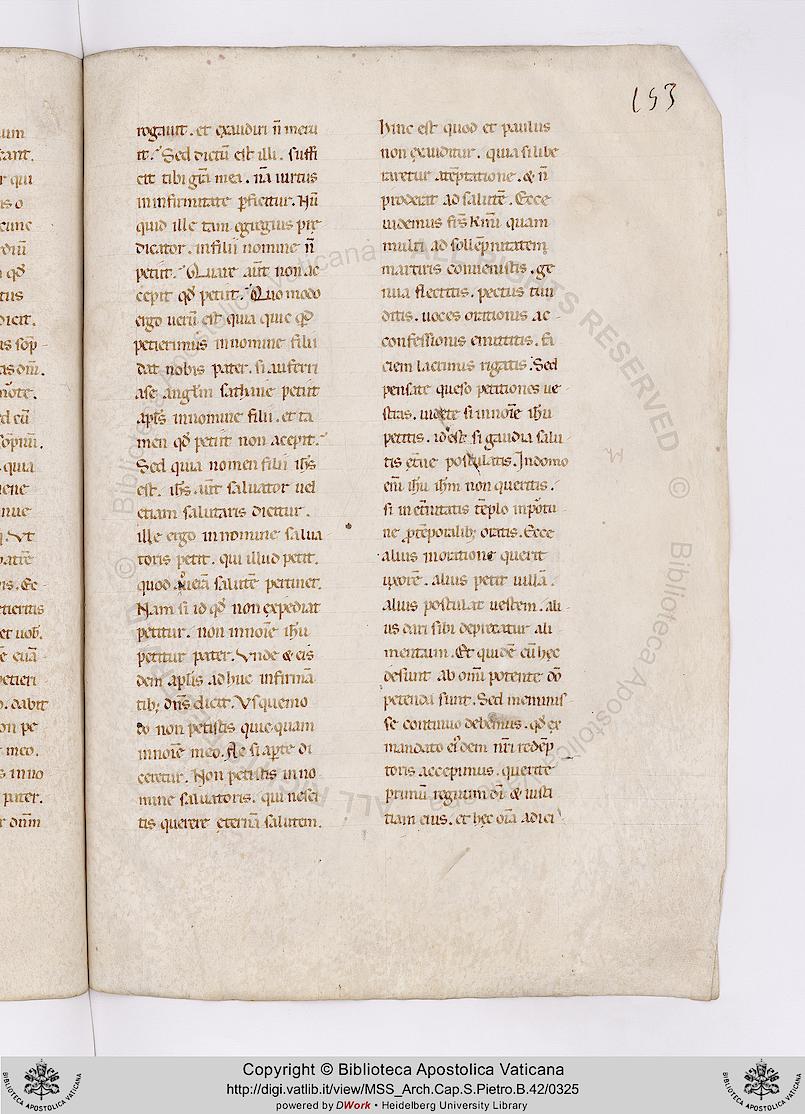 153
rogavit. et exaudiri n̄ meru
it. Sed dictū est illi. suffi
cit tibi gr̄a mea. nā virtus
in infirmitate p̄ficitur. Nū
quid ille tam egregius pre
dicator. in filii nomine n̄
petiit. Quare aut̄ non ac
cepit qd̄ petiit. Quomodo
ergo verū est quia quic qd̄
petierimus in nomine filii
dat nobis pater. si auferri
a se anglm̄ sathane petiit
apl̄s in nomine filii. et ta
men qd̄ petiit non acepit.
Sed quia nomen filii ih̄s
est. ih̄s aut̄ salvator vel
etiam salutaris dicitur.
ille ergo in nomine salva
toris petit. qui illud petit.
quod ad verā salutē pertinet.
Nam si id qd̄ non expediat
petitur. non in noīe ih̄u
petitur pater. Vnde & eis
dem apl̄is adhuc infirmā
tib; dn̄s dicit. Vsque mo
do non petistis quicquam
in noīe meo. Ac si ap̄te di
ceretur. Non petistis in no
mine salvatoris. qui nesci
tis querere ęternā salutem.
hinc est quod et paulus
non exauditur. quia si libe
raretur a tēptatione. & n̄
proderat ad salutē. Ecce
videmus frs̄ Km̄i quam
multi ad sollēpnitatem
martiris convenistis. ge
nua flectitis. pectus tun
ditis. voces orationis ac
confessionis emittitis. fa
ciem lacrimis rigatis. Sed
pensate queso petitiones ve
stras. videte si in noīe ih̄u
petitis. id est si gaudia salu
tis ęt̄ne postulatis. In domo
eni᷒ ih̄u ih̄m non queritis.
si in et̄nitatis tēplo inportu
ne p̄ tēporalib; oratis. Ecce
alius in oratione querit
uxorē. alius petit villā.
alius postulat vestem. ali
us dari sibi deprecatur ali
mentum. Et quidē cū hęc
desunt ab om̄i potente dō
petenda sunt. Sed meminis
se continuo debemus. qd̄ ex
mandato ei᷒dem nr̄i redēp
toris accepimus. querite
primū regnum dī & iusti
tiam eius. et hęc om̄a adici
uum
cant.
r qui
d̄icit.
quia
et vob̄.
dabit
non pe
meo.
pater.
Copyright © Biblioteca Apostolica Vaticana
http://digi.vatlib.it/view/MSS_Arch.Cap.S.Pietro.B.42/0325
powered by DWork • Heidelberg University Library
BIBLIOTECA APOSTOLICA VATICANA
BIBLIOTECA APOSTOLICA VATICANA
© Biblioteca Apostolica Vaticana ALL RIGHTS RESERVED